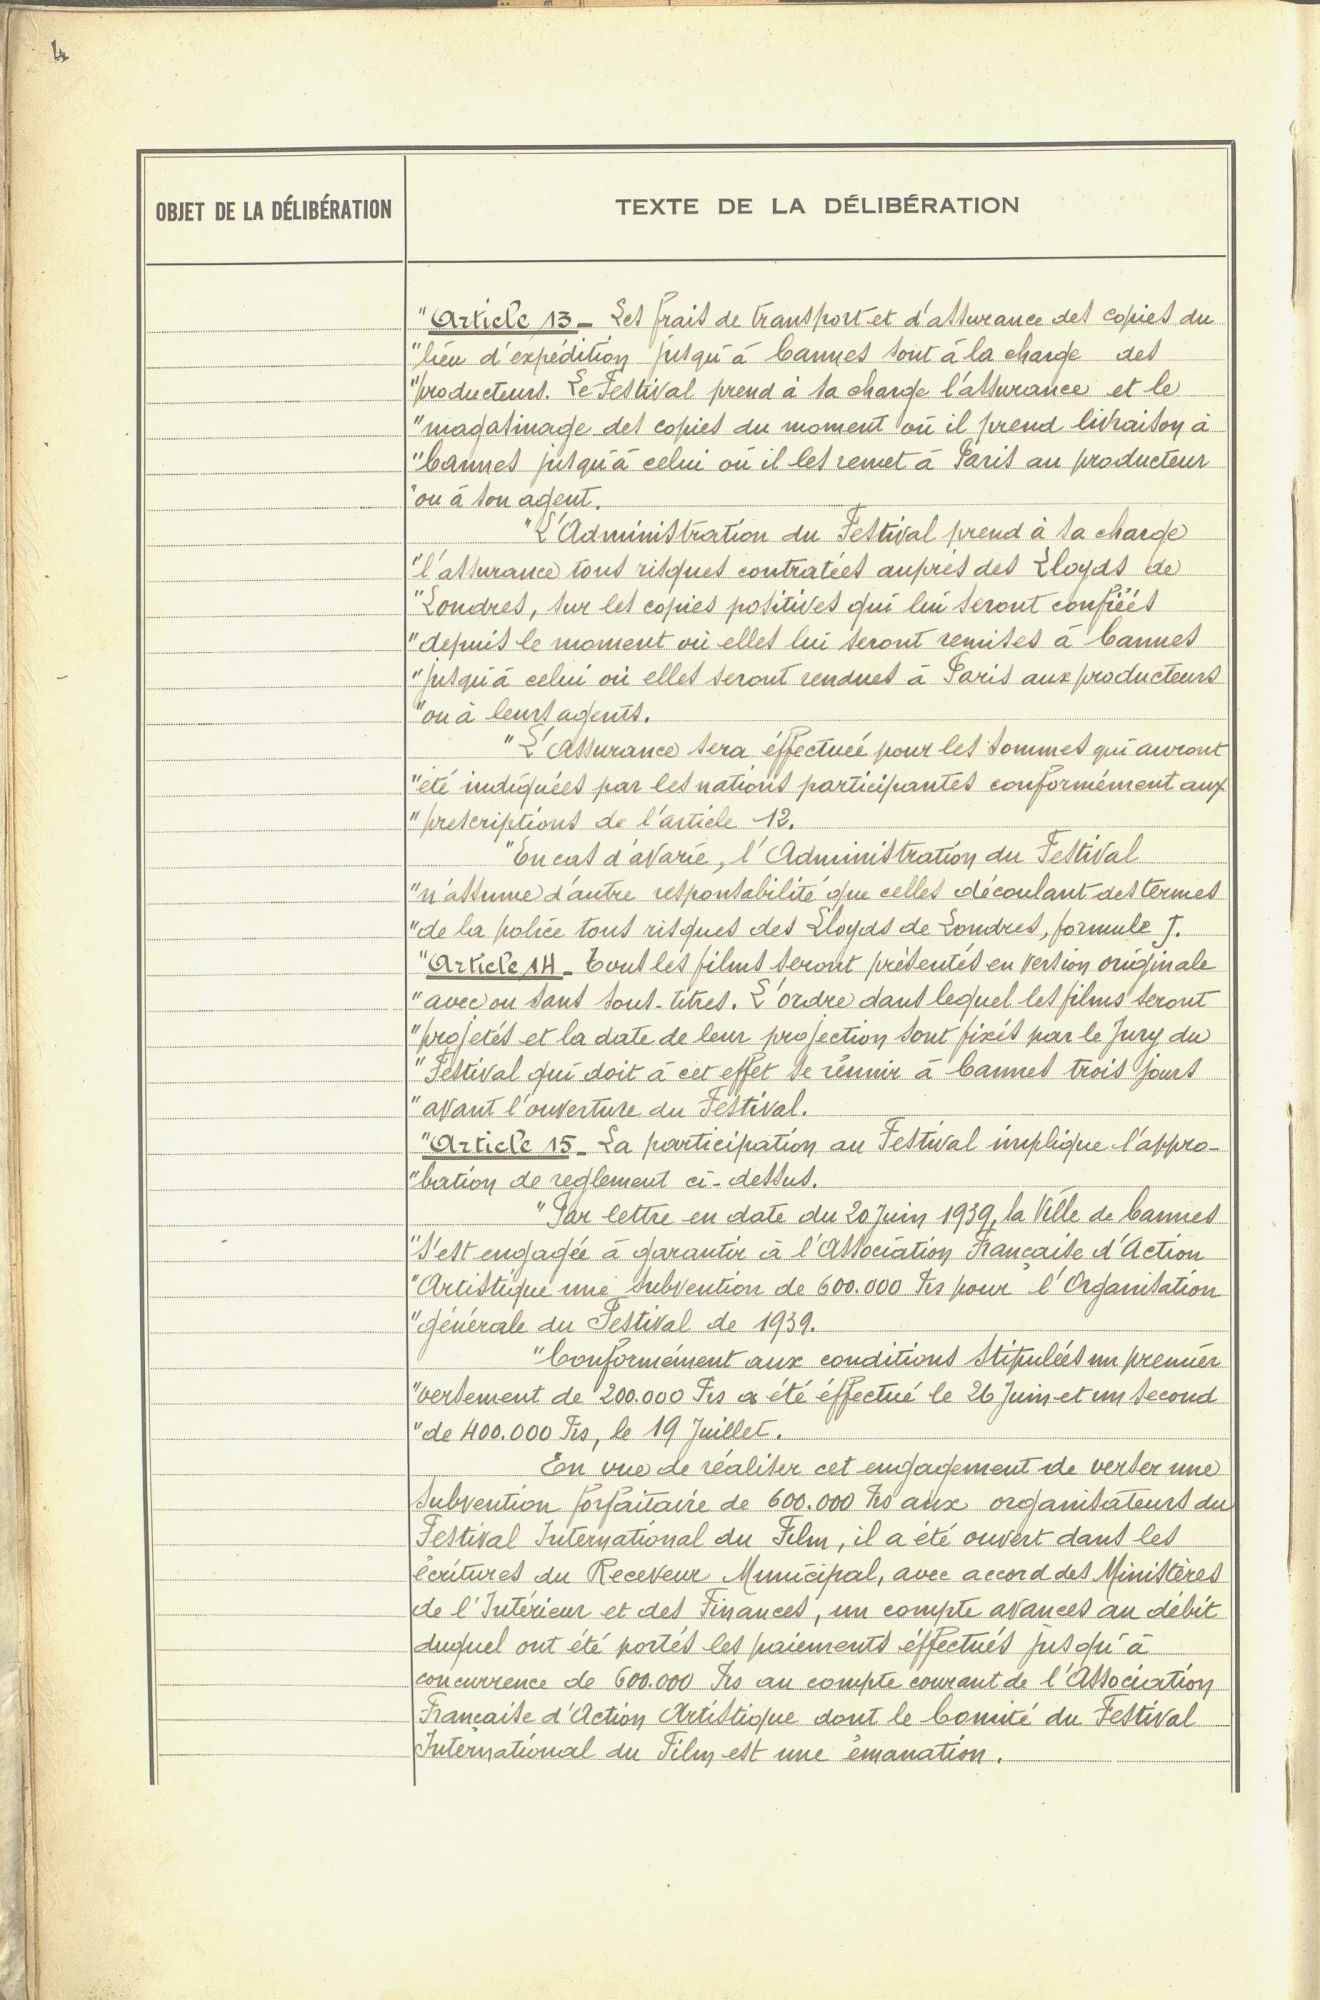 4
OBJET DE LA DÉLIBÉRATION
TEXTE DE LA DÉLIBÉRATION
"Article 13 - Les frais de transport et d'assurance des copies du
"lieu d'expédition jusqu'à Cannes sont à la charge des
"producteurs. Le Festival prend à sa charge l'assurance et le
"magasinage des copies du moment où il prend livraison à
"Cannes jusqu'à celui où il les remet à Paris au producteur
"ou à son agent.
"L'Administration du Festival prend à sa charge
"l'assurance tous risques contratées auprès des Lloyds de
"Londres, sur les copies positives qui lui seront confiées
"depuis le moment où elles lui seront remises à Cannes
"jusqu'à celui où elles seront rendues à Paris aux producteurs
"ou à leurs agents.
"L'Assurance sera éffectuée pour les sommes qui auront
"été indiquées par les nations participantes conformément aux
"prescriptions de l'article 12.
"En cas d'avarie, l'Administration du Festival
"n'assume d'autre responsabilité que celles découlant des termes
"de la police tous risques des Lloyds de Londres, formule J.
"Article 14 - Tous les films seront présentés en version originale
"avec ou sans sous-titres. L'ordre dans lequel les films seront
"projetés et la date de leur projection sont fixés par le Jury du
"Festival qui doit à cet effet se réunir à Cannes trois jours
"avant l'ouverture du Festival.
"Article 15 - La participation au Festival implique l'appro-
"bation de reglement ci-dessus.
"Par lettre en date du 20 Juin 1939, la Ville de Cannes
"s'est engagée à garantir à l'Association Française d'Action
"Artistique une subvention de 600.000 Frs pour l'Organisation
"générale du Festival de 1939.
"Conformément aux conditions stipulées un premier
"versement de 200.000 Frs a été éffectué le 26 Juin et un second
"de 400.000 Frs, le 19 Juillet.
En vue de réaliser cet engagement de verser une
subvention forfaitaire de 600.000 Frs aux organisateurs du
Festival International du Film, il a été ouvert dans les
écritures du Receveur Municipal, avec accord des Ministères
de l'Intérieur et des Finances, un compte avances au débit
duquel ont été portés les paiements éffectués jusqu'à
concurrence de 600.000 Frs au compte courant de l'Association
Française d'Action Artistique dont le Comité du Festival
International du Film est une émanation.